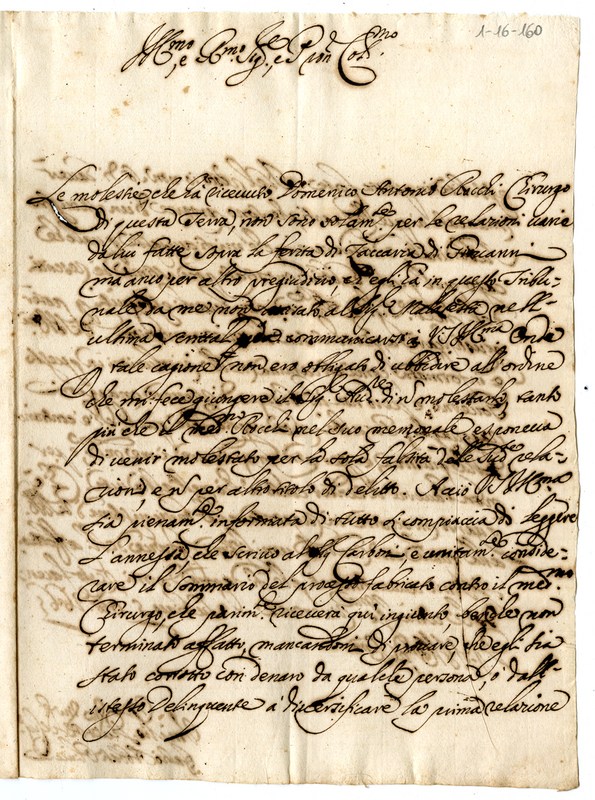 1-16-160
Ill.mo, e R.mo Sig.re, e P.ron Col.mo
Le molestie, che hà ricevuto Domenico Antonio Rocchi Cirurgo
di questa Terra, non sono solam.te per le relazioni varie
da lui fatte sopra la ferita di Zaccaria di Giovanni
ma anco per altro pregiudizio ch'egli hà in questo Tribu-
nale da me non al Sig. nell'
ultima communicarsi à V.S. Ill.ma Onde
tale cagione non ero obligato di ubbidire all'ordine
che mi fece giungere il Sig. Aud.re di ñ molestarlo, tanto
più che il med.mo Rocchi nel suo memoriale esponeva
di venir molestato per la sola falsità delle Sud.te rela-
zioni, e ñ per altro titolo di delitto. Acciò V.S. Ill.ma
sia pienam.te informata di tutto si compiaccia di leggere
l'annessa, che scrivo al Sig. Carboni, e unitam.te conside-
rare il Sommario del processo fabricato contro il med.mo
Cirurgo, che parim.te riceverà quì ingiunto, benche non
terminato affatto, mancandomi di provare, che egli sia
stato corrotto con denaro da qualche persona, ò dall'
istesso Delinquente à diversificare la prima relazione